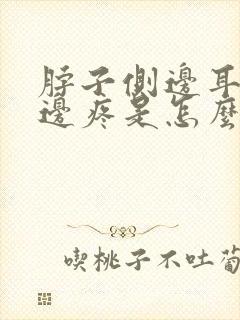 脖子側邊耳
邊疼是怎麼
喫桃子不吐葡